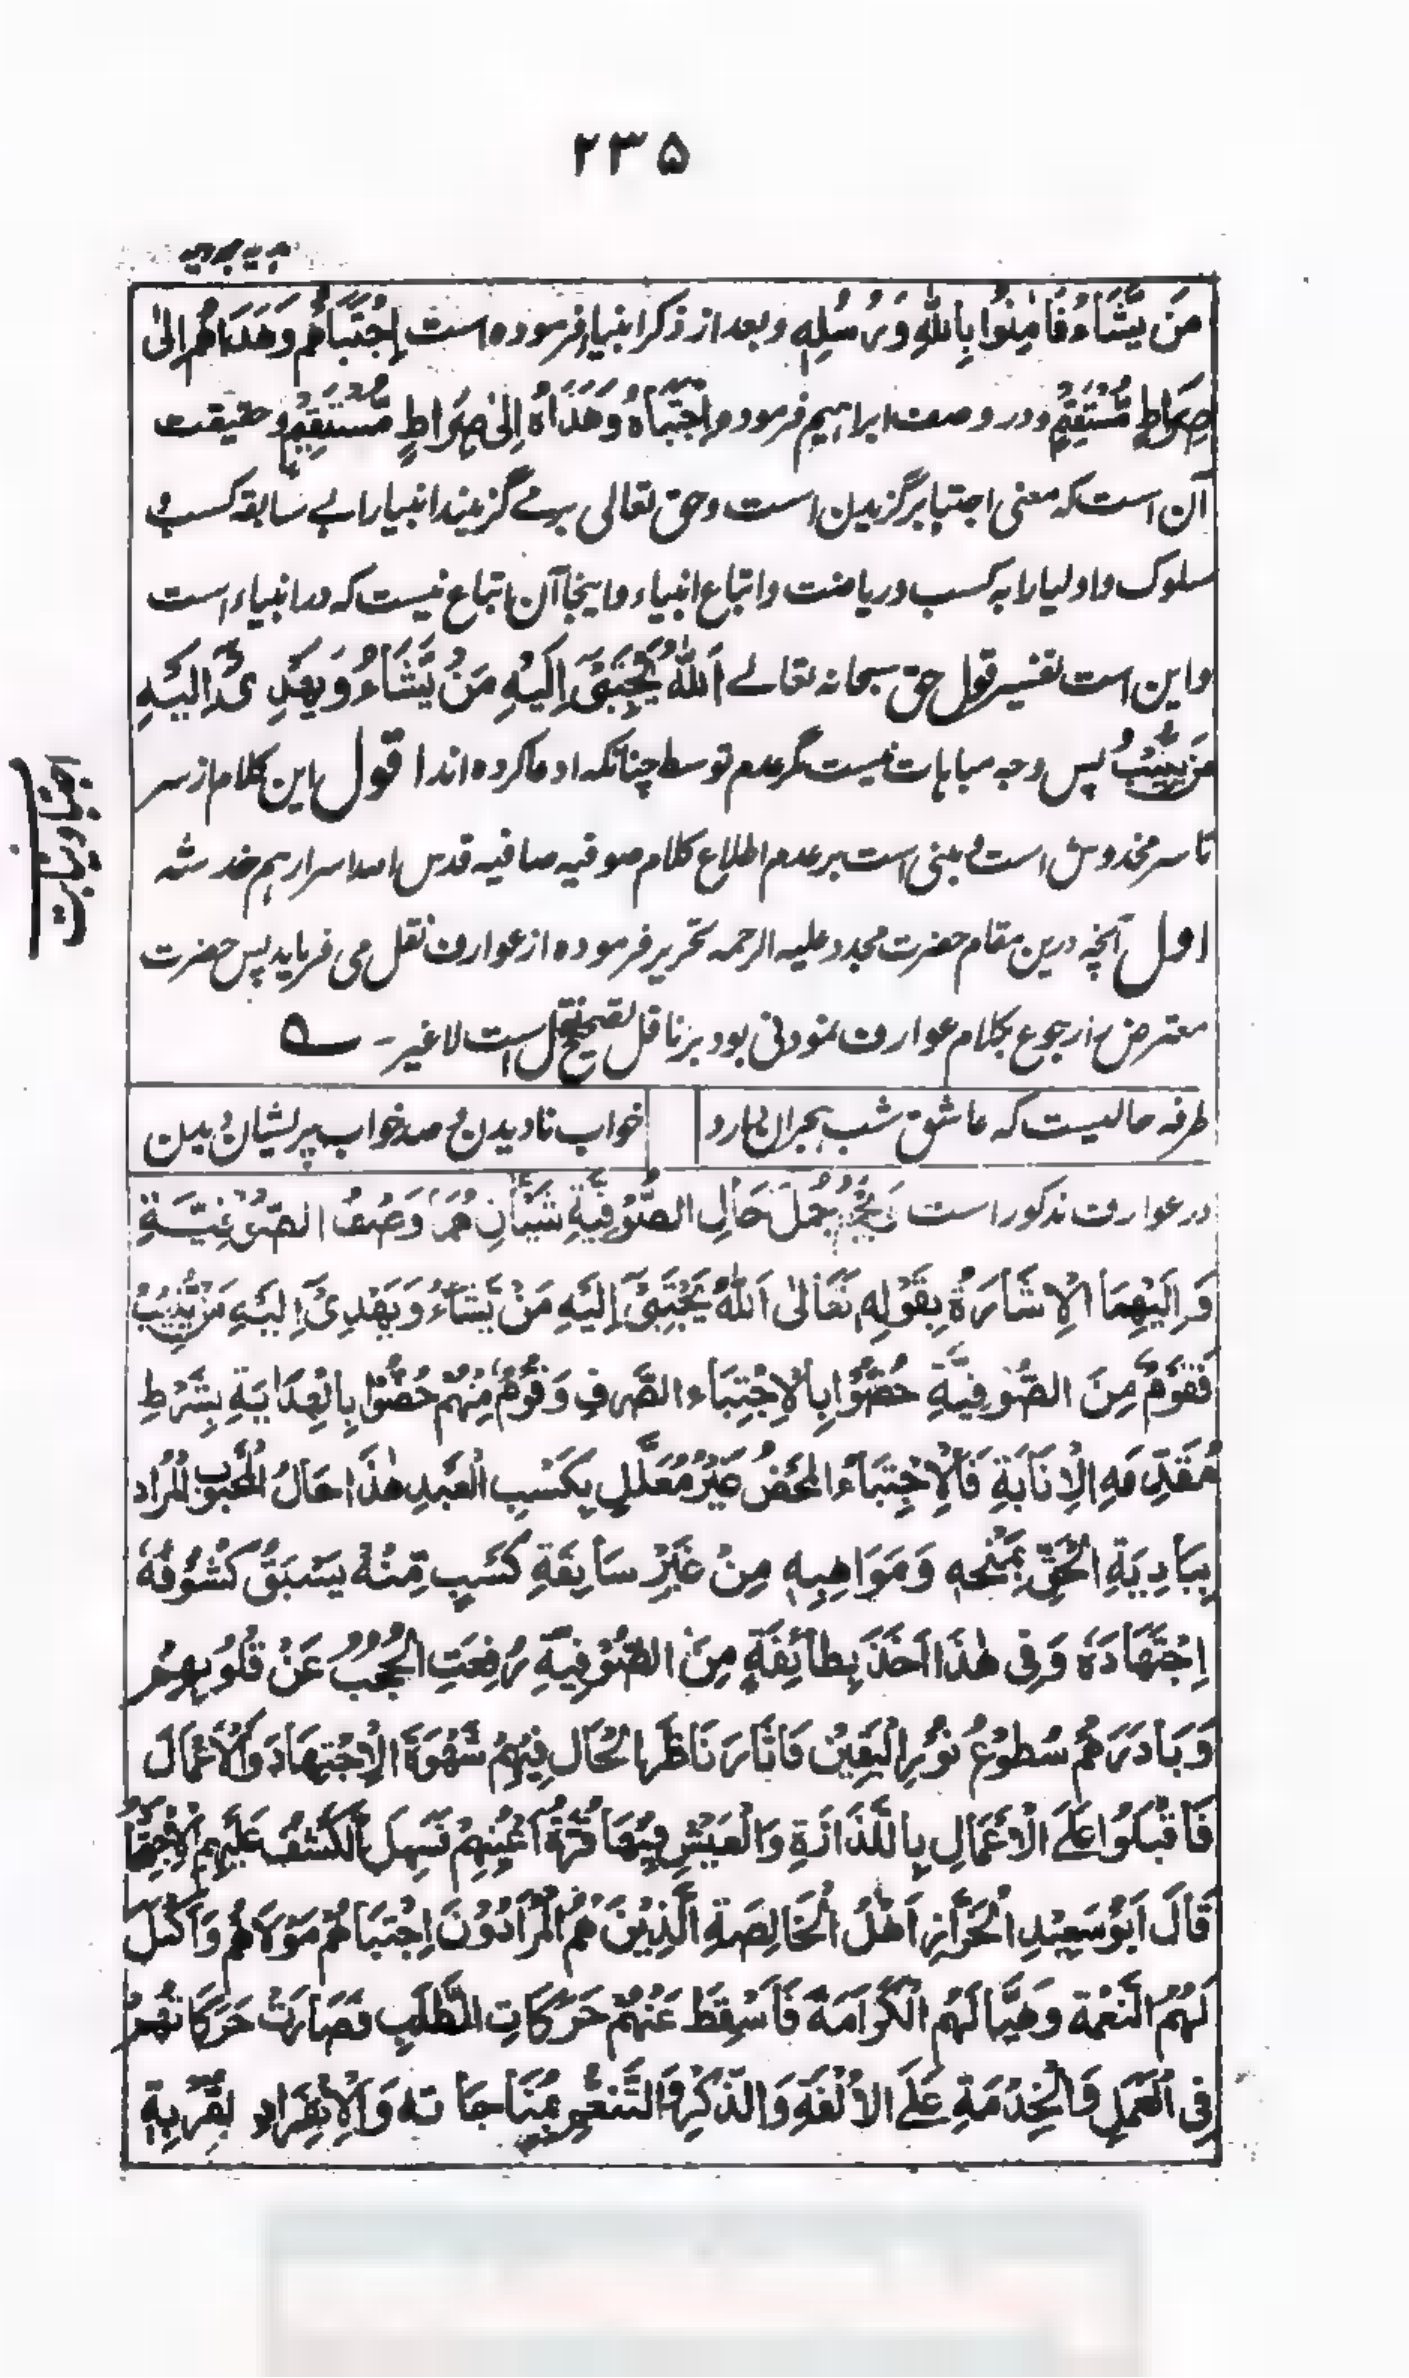 ۲۳۵
هدیه مجددیه
مَن يَّشَاءُ فَاٰمِنُوا بِاللّٰهِ وَرُسُلِهٖ وبعد از ذکر انبیاء فرموده است اِجْتَبَاهُم وَهَدَاهُم اِلٰى
صِرَاطٍ مُّسْتَقِيْمٍ ودر وصف ابراہیم فرمود واِجْتَبَاهُ وَهَدَاهُ اِلٰى صِرَاطٍ مُّسْتَقِيْمٍ وحقیقت
آن است که معنی اجتبا برگزیدن است وحق تعالی برمے گزیند انبیا را بے سابقه کسب و
سلوک واولیا را به کسب وریاضت واتباع انبیاء واینجا آن اتباع نیست که در انبیاء است
واین است تفسیر قول حق سبحانه تعالے اَللّٰهُ يَجْتَبِىْٓ اِلَيْهِ مَنْ يَّشَاءُ وَيَهْدِىْٓ اِلَيْهِ
مَنْ يُّنِيْبُ پس وجه مباہات نیست مگر عدم توسط چنانکه ادعا کرده اند اقول این کلام از سر
تا سر مخدوش است ومبنی است بر عدم اطلاع کلام صوفیه صافیه قدس الله اسرارہم خدشه
اول آنچه درین مقام حضرت مجدد علیه الرحمه تحریر فرموده از عوارف نقل می فرماید پس حضرت
معترض را رجوع بکلام عوارف نمودنی بود بر ناقل تصحیح نقل است لا غیر ـ ے
طرفه حالیست که عاشق شب ہجران دارد خواب نادیدن وصد خواب پریشان دیدن
در عوارف مذکور است وَنَحْنُ جُمَلُ حَالِ الصُّوْفِيَّةِ شَيْئَانِ هُمَا وَصْفُ الصُّوْفِيَّةِ
وَاِلَيْهِمَا الْاِشَارَةُ بِقَوْلِهٖ تَعَالٰى اَللّٰهُ يَجْتَبِىْٓ اِلَيْهِ مَنْ يَّشَآءُ وَيَهْدِىْٓ اِلَيْهِ مَنْ يُّنِيْبُ
فَقَوْمٌ مِنَ الصُّوْفِيَّةِ خُصُّوْا بِالْاِجْتِبَاءِ الصَّرْفِ وَقَوْمٌ مِنْهُمْ خُصُّوْا بِالْهِدَايَةِ بِشَرْطِ
مُقَدِّمَةِ الْاِنَابَةِ فَالْاِجْتِبَاءُ الْمَحْضُ غَيْرُ مُعَلَّلٍ بِكَسْبِ الْعَبْدِ هٰذَا حَالُ الْمَحْبُوْبِ الْمُرَادِ
بِبَادِيَةِ الْحَقِّ بِمِنَحِهٖ وَمَوَاهِبِهٖ مِنْ غَيْرِ سَابِقَةِ كَسْبٍ مِّنْهُ يَسْبَقُ كُشُوْفُهٗ
اِجْتِهَادَهٗ وَفِى هٰذَا اَخَذَ بِطَائِفَةٍ مِنَ الصُّوْفِيَّةِ رُفِعَتِ الْحُجُبُ عَنْ قُلُوْبِهِمْ
وَبَادَرَهُمْ سُطُوْعُ نُوْرِ الْيَقِيْنِ فَاَثَارَ نَاظِرُ الْحَالِ فِيْهِمْ شَهْوَةَ الْاِجْتِهَادِ وَالْاَعْمَالِ
فَاَقْبَلُوْا عَلَى الْاَعْمَالِ بِاللَّذَاذَةِ وَالْعَيْشِ فِيْهَا قُرَّةُ اَعْيُنِهِمْ فَسَهَّلَ الْكَشْفُ عَلَيْهِمُ الْاِجْتِهَادَ
قَالَ اَبُوْ سَعِيْدِ الْخَرَّازِ اَهْلُ الْخَالِصَةِ الَّذِيْنَ هُمُ الْمُرَادُوْنَ اِجْتَبَاهُمْ مَوْلَاهُمْ وَاَكْمَلَ
لَهُمُ النِّعْمَةَ وَهَيَّا لَهُمُ الْكَرَامَةَ فَاَسْقَطَ عَنْهُمْ حَرَكَاتِ الطَّلَبِ فَصَارَتْ حَرَكَاتُهُمْ
فِى الْعَمَلِ وَالْخِدْمَةِ عَلَى الْاُلْفَةِ وَالذِّكْرِ وَالتَّنَعُّمِ بِمُنَاجَاتِهٖ وَالْاِنْفِرَادِ بِقُرْبِهٖ